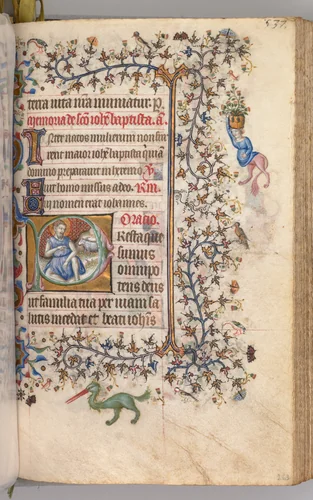 terra uita nīa muniatur. P.
memoria de scō ioħe baptista. a.
Inter natos mulierum non sur
rexit maior iohē baptista qui uiā
domino preparauit in heremo. V
Fuit homo missus a deo. Rm̄
Cui nomen erat iohannes.
Oratio.
Presta que
sumus
omnipo
tens deus
ut familia tua per uiam sa
lutis incedat et beati ioħis